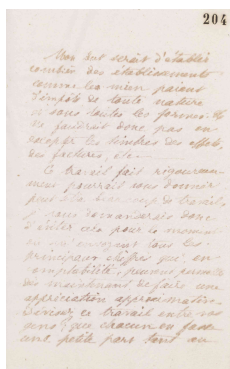 204
Mon but serait d'établir
combien des établissements
comme les mien paient
d'impôts de toute nature
sous toutes les formes. Il
ne faudrait donc pas en
excepter les timbres des effets,
des factures, etc.
Ce travail fait rigoureuse
ment pourrait vous donner
peut être beaucoup de travail,
je vous demanderais donc
d'éviter cela pour le moment
en m'envoyant tous les
principaux chiffres qui, en
comptabilité, peuvent permettre
dès maintenant de faire une
appréciation approximative.
Divisez ce travail entre vos
gens, que chacun en fasse
une petite part tout au